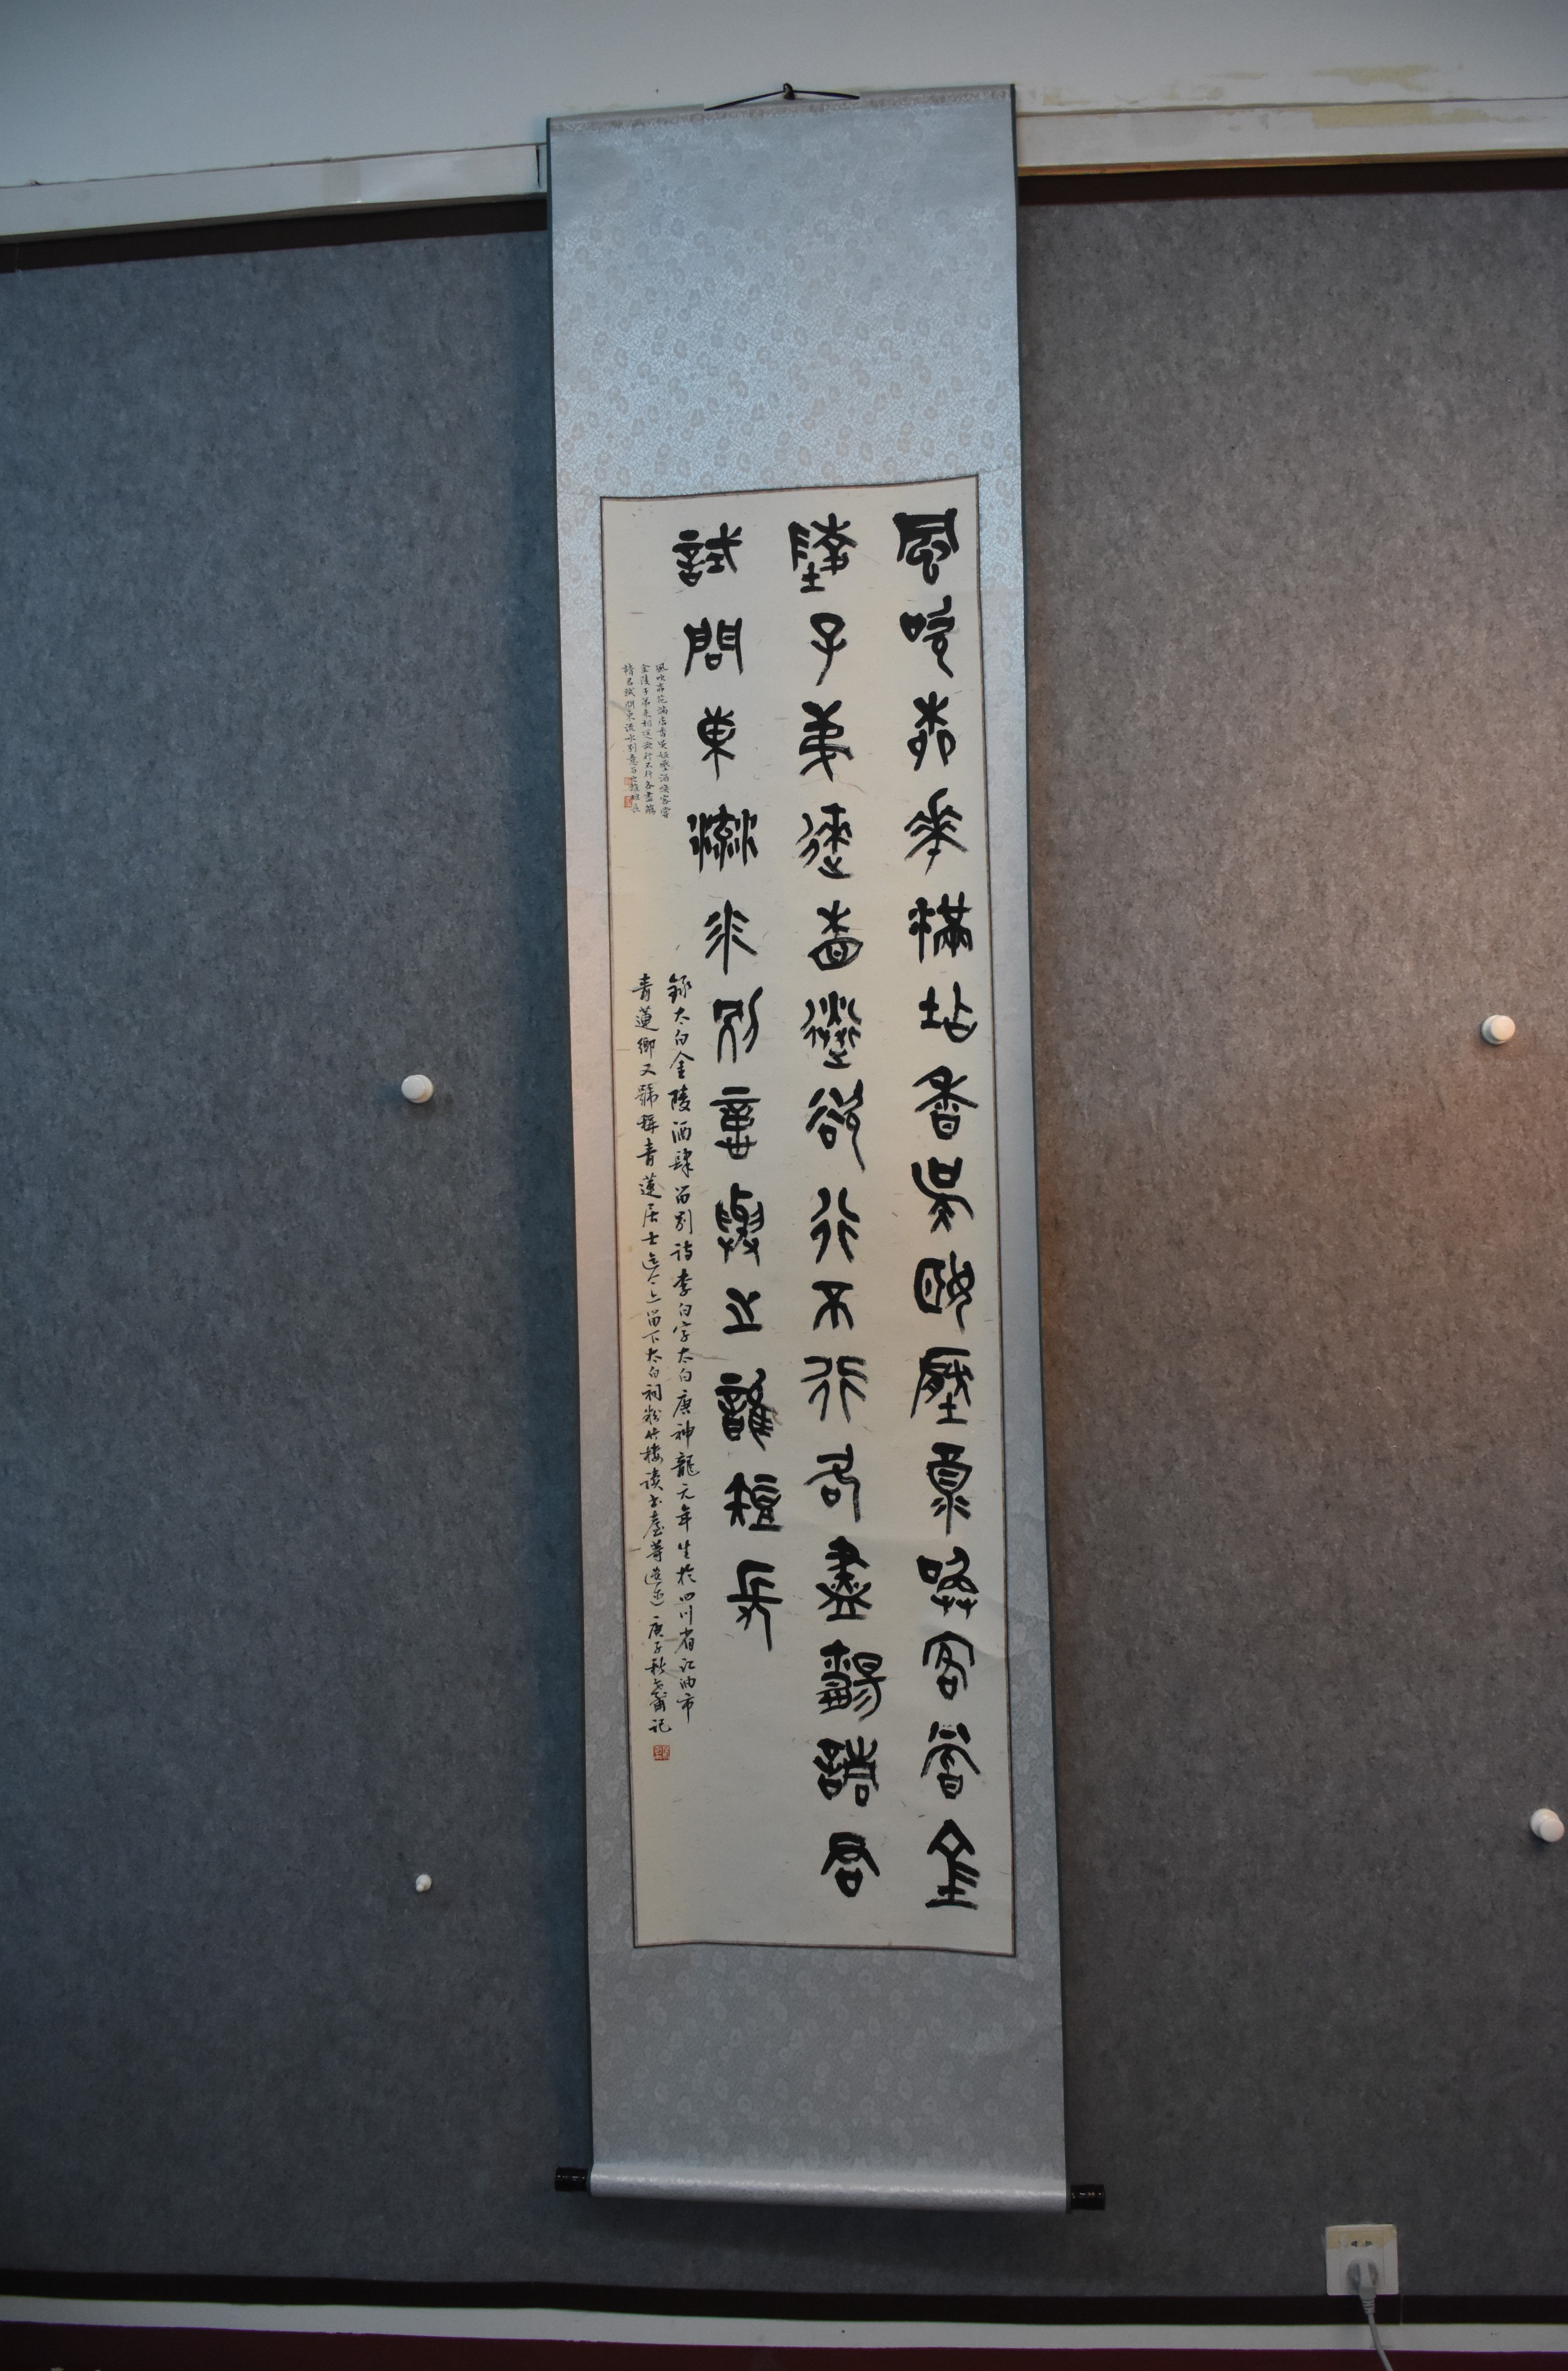 風吹柳花滿店香吳姬壓酒喚客嘗金
陵子弟來相送欲行不行各盡觴請君
試問東流水別意與之誰短長
風吹柳花滿店香吳姬壓酒喚客嘗
金陵子弟來相送欲行不行各盡觴
請君試問東流水別意與之誰短長
錄太白金陵酒肆留别诗李白字太白唐神龍元年生於四川省江油市
青蓮鄉又號稱青蓮居士迄今上留下太白祠粉竹樓读书臺等遺迹庚子秋記